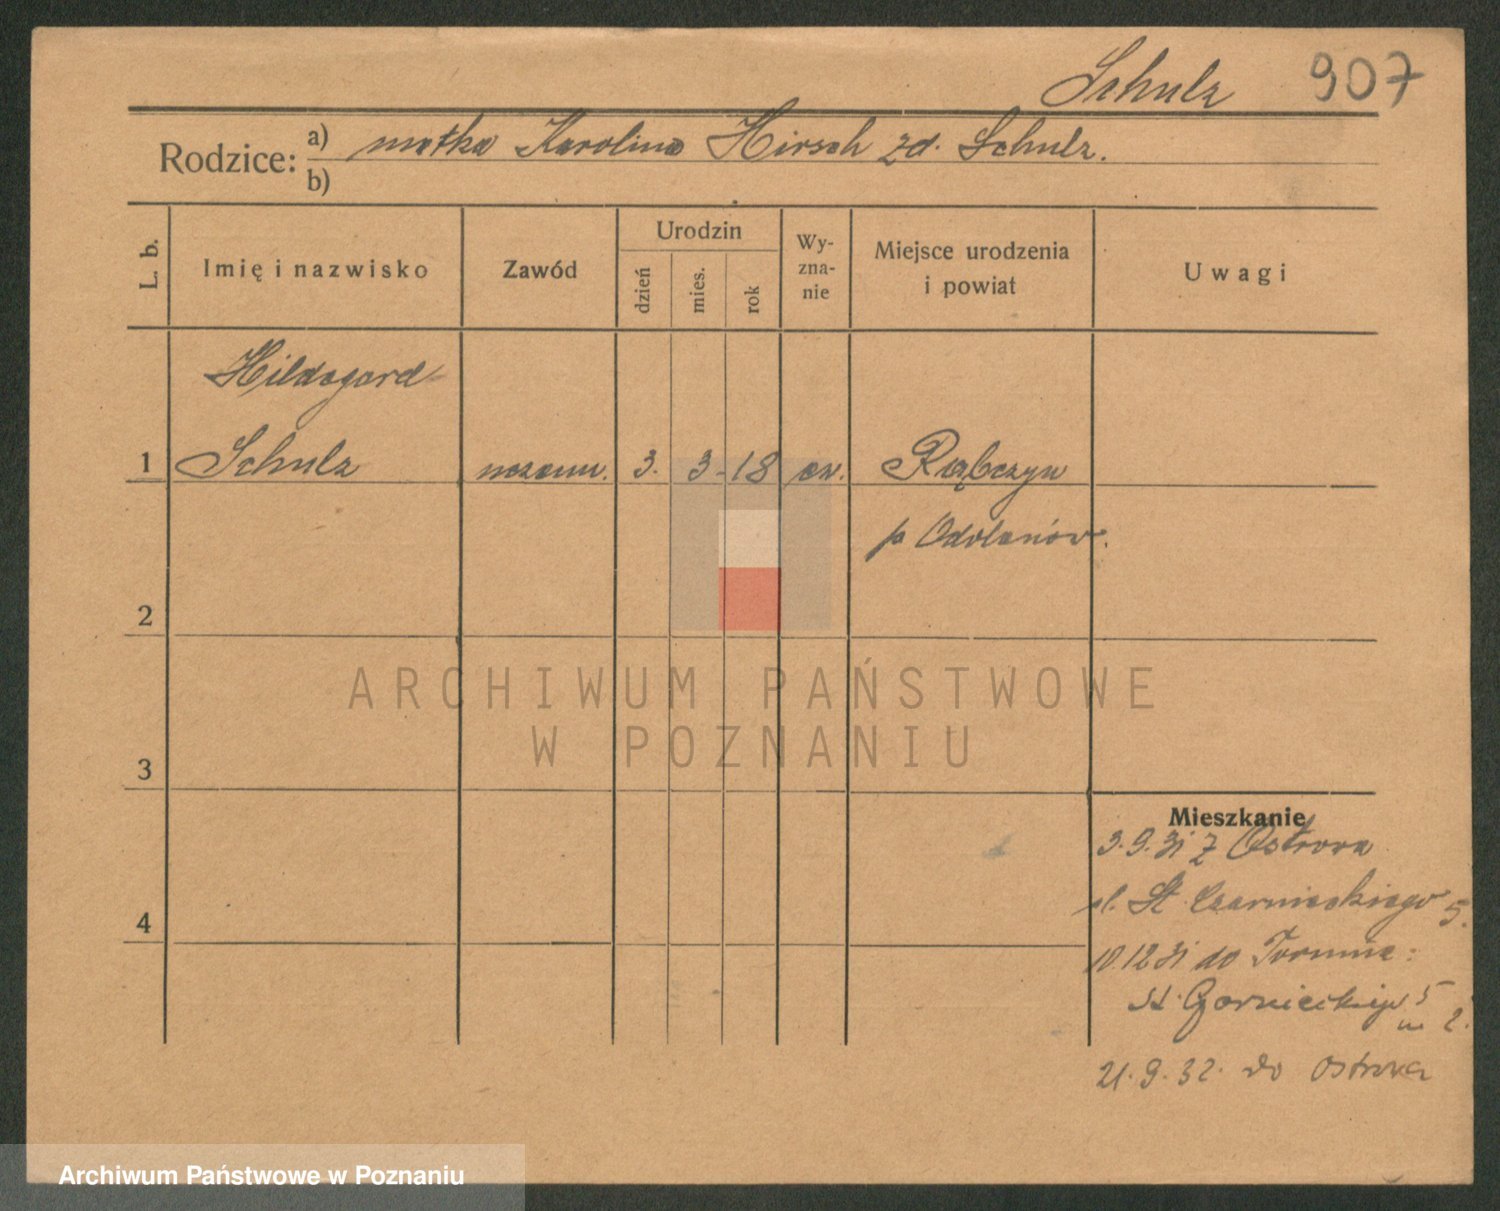 Schulz 907
Rodzice: a) matka Karolina Hirsch zd. Schulz.
b)
L. b. Imię i nazwisko Zawód Urodzin dzień mies. rok Wy-zna-nie Miejsce urodzenia i powiat Uwagi
Hildegard
1 Schulz uczenn. 3. 3-18 ew. Rąbczyn
p Odolanów.
2
ARCHIWUM PAŃSTWOWE
W POZNANIU
3
Mieszkanie
3.9.31 z Ostrowa
pl. St. Czarnieckiego 5.
4
10.12 31 do Torunia:
St. Górnickiego 5
m 2.
21.9.32. do Ostrowa
Archiwum Państwowe w Poznaniu